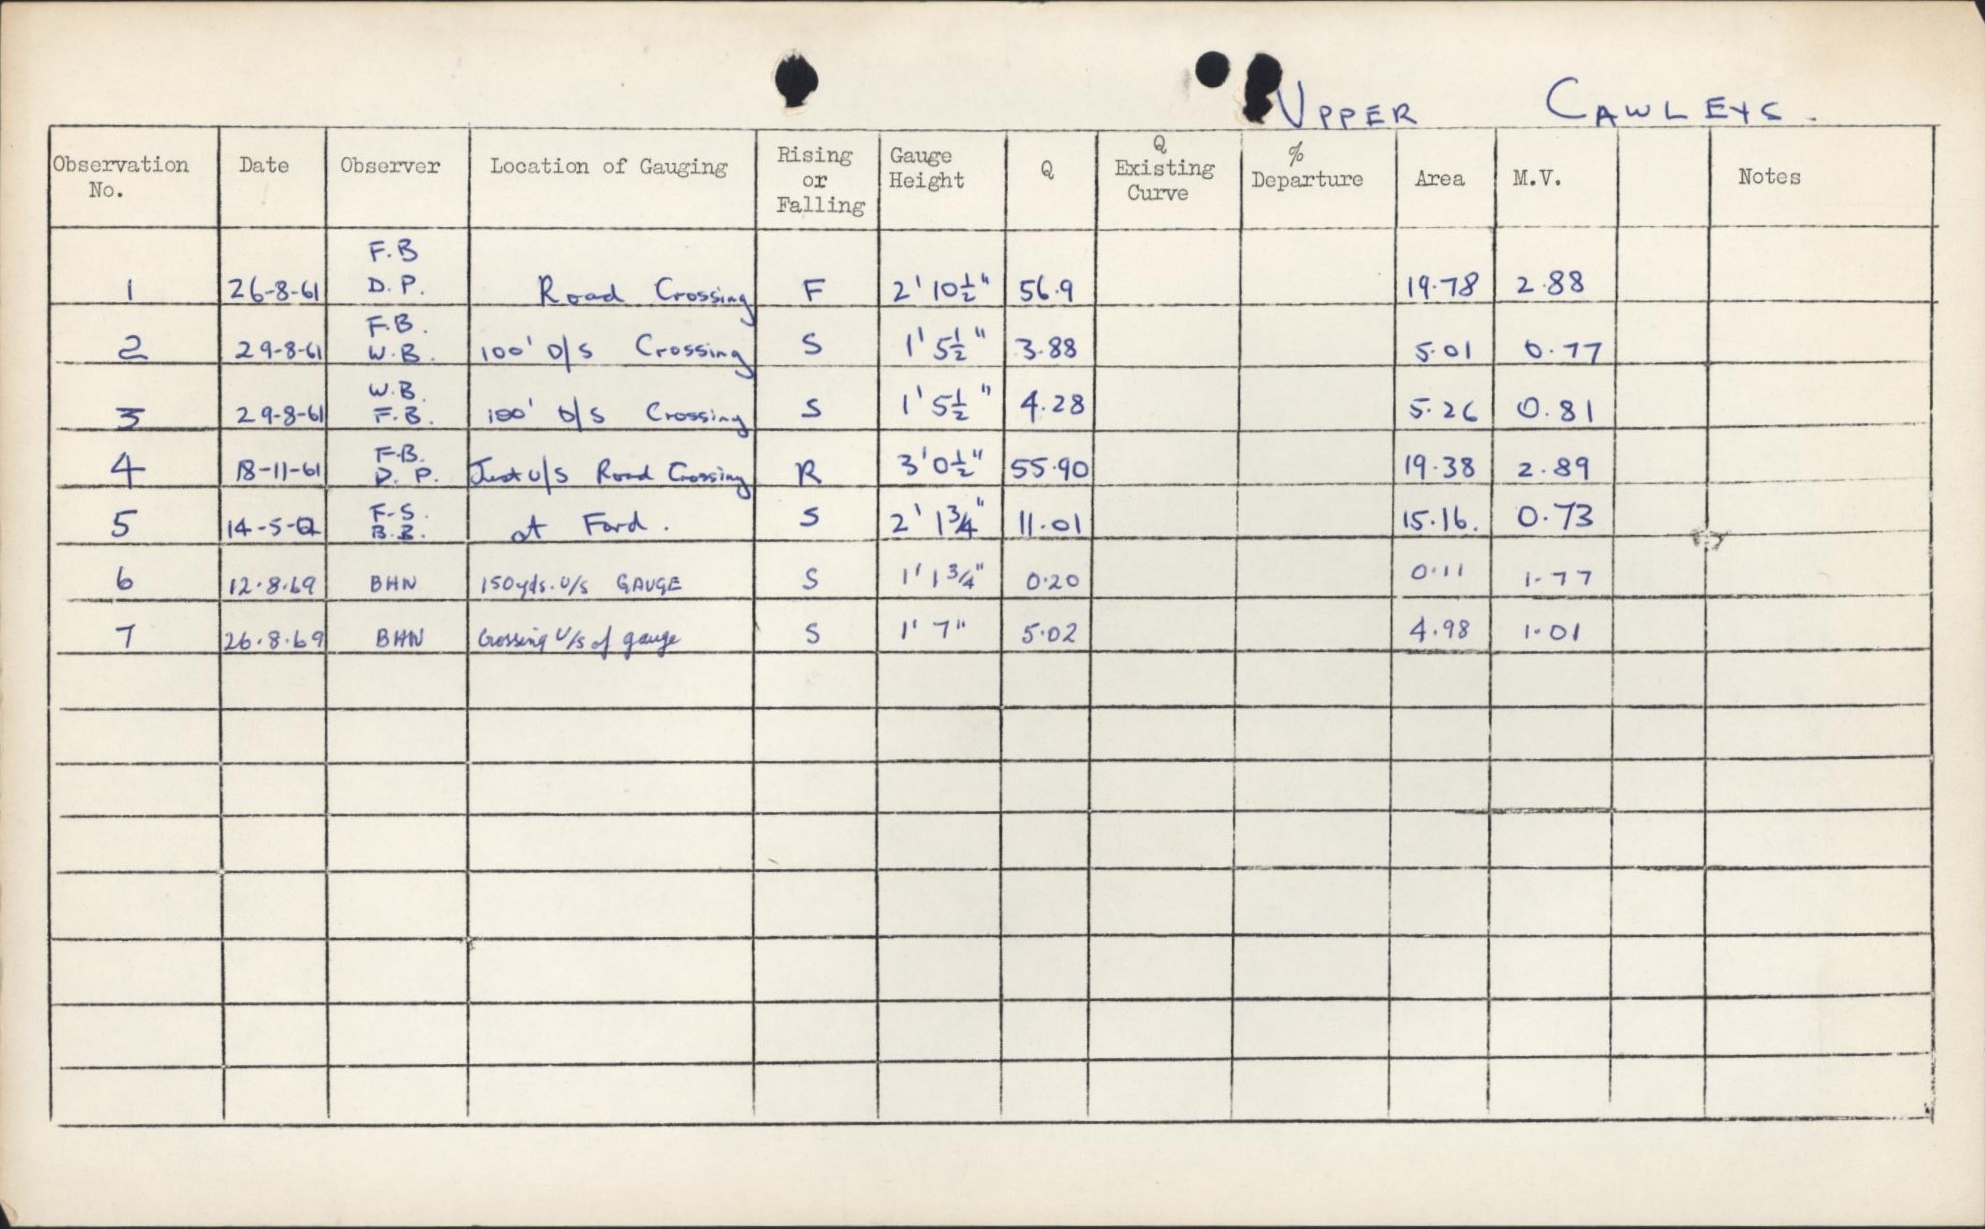 UPPER CAWLEYS.
Observation No. Date Observer Location of Gauging Rising or Falling Gauge Height Q Q Existing Curve % Departure Area M.V. Notes
1 26-8-61 F.B D.P. Road Crossing F 2' 10½" 56.9 19.78 2.88
2 29-8-61 F.B. W.B. 100' D/S Crossing S 1' 5½" 3.88 5.01 0.77
3 29-8-61 W.B. F.B. 100' D/S Crossing S 1' 5½" 4.28 5.26 0.81
4 18-11-61 F.B. D.P. Just U/S Road Crossing R 3' 0½" 55.90 19.38 2.89
5 14-5- F.S. B.B. at Ford. S 2' 1¾" 11.01 15.16. 0.73
6 12.8.69 BHN 150yds. U/S GAUGE S 1' 1¾" 0.20 0.11 1.77
7 26.8.69 BHN Crossing U/S of gauge S 1' 7" 5.02 4.98 1.01